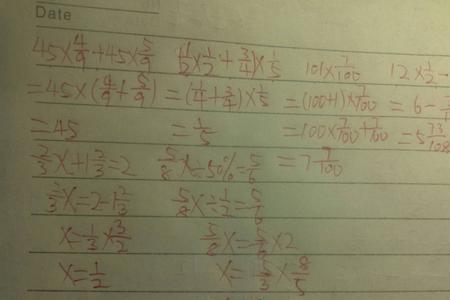 Date
45×4/9+45×5/9 (1/2×1/2+3/4)×1/5 101×7/100 12×1/2-
=45×(4/9+5/9) =(1/4+3/4)×1/5 =(100+1)×7/100 =6-
=45 =1/5 =100×7/100+7/100 =5 73/108
2/3X+1 2/3=2 5/8X÷50%=5/6 =7 7/100
2/3X=2-1 2/3 5/8X÷1/2=5/6
X=1/3×3/2 5/8X=5/6×2
X=1/2 X=5/3×8/5